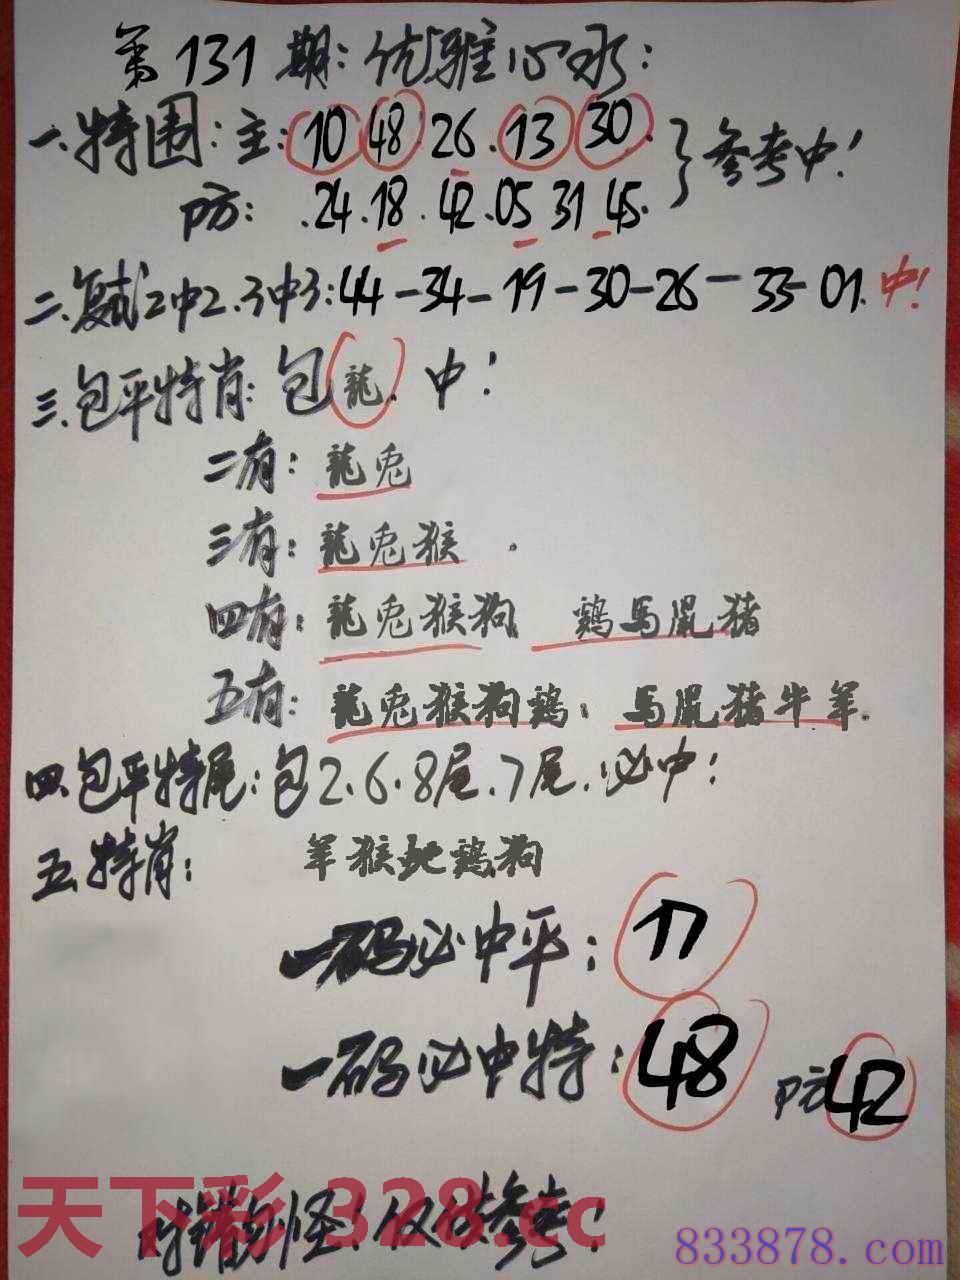 第131期:优雅心水:
一.特围:主:10 48 26.13 30.}参考中!
防:.24.18.42.05 31 45.
二.复式2中2.3中3:44-34-19-30-26-33-01.中!
三.包平特肖:包龍.中!
二有:龍兎
三有:龍兎猴.
四有:龍兎猴狗 鷄馬鼠猪
五有:龍兎猴狗鷄;馬鼠猪牛羊.
四.包平特尾:包2.6.8尾.7尾.必中!
五.特肖: 羊猴虵鷄狗
一码必中平:17
一码必中特:48 防42
天下彩 328.cc
对错勿怪!仅供参考!
833878.com